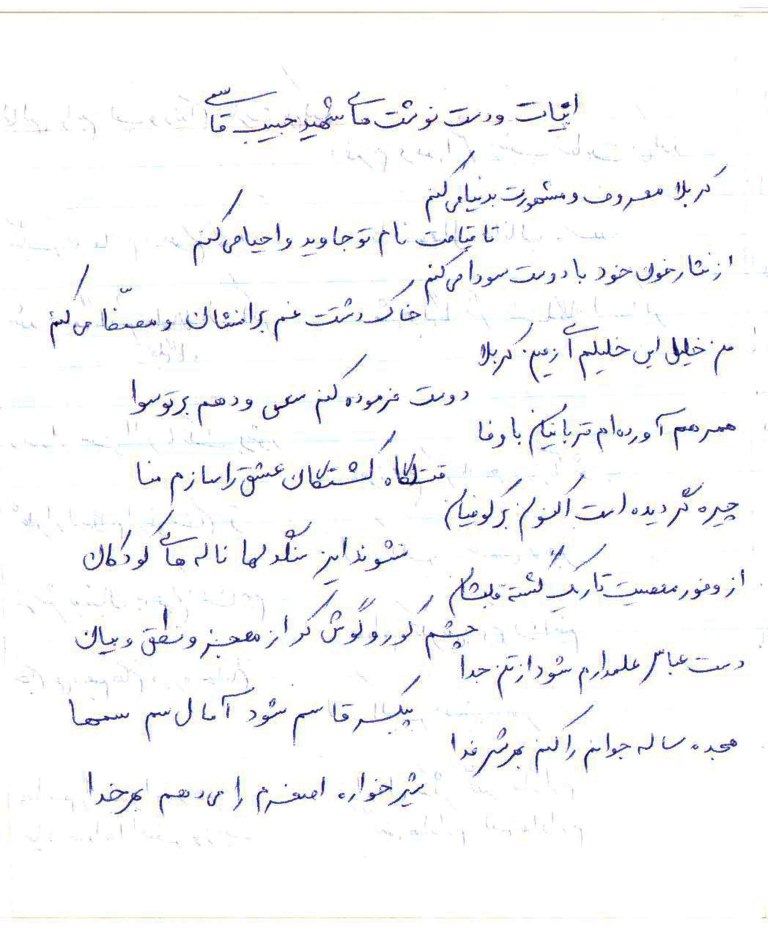 ابیات و دست نوشت های شهید حبیب قاسمی
کربلا معروف و مشهورت بدنیا می کنم
تا قیامت نام تو جاوید و احیا می کنم
از نثار خون خود با دوست سودا می کنم
خاک دشتت عنبر افشان و مصفّا می کنم
من خلیل ابن خلیلم ای زمین کربلا
دوست فرموده کنم سعی و دهم بر تو سوا
همرهم آورده ام قربانیان با وفا
قتلگاه کشتگان عشق را سازم منا
چیره گردیده است اکنون بر کوفیان
نشوند این سنگدلها ناله های کودکان
از وفور معصیت تاریک گشته قلبشان
چشم کور و گوش کر از معجز و نطق و بیان
دست عباس علمدارم شود از تن جدا
پیکر قاسم شود آمال سم سمها
هجده ساله جوانم را کنم بهرش فدا
شیر خواره اصغرم را می دهم بهر خدا